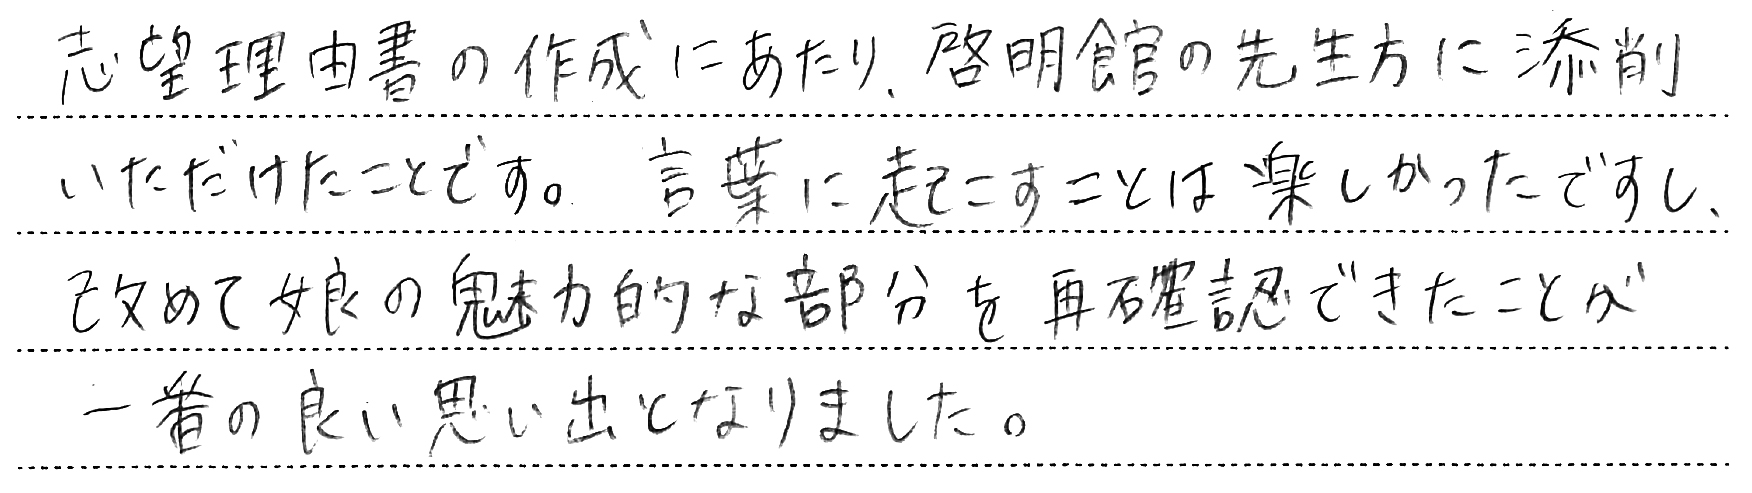 志望理由書の作成にあたり、啓明館の先生方に添削
いただけたことです。言葉に起こすことは楽しかったですし、
改めて娘の魅力的な部分を再確認できたことが
一番の良い思い出となりました。